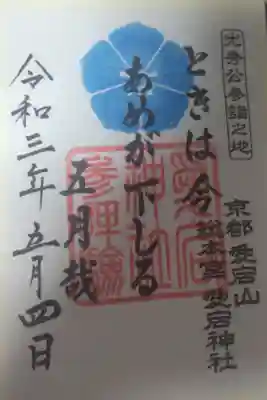 光秀公参詣之地
京都 愛宕山
総本宮 愛宕神社
ときは今
あめが下しる
五月哉
令和三年五月四日
愛宕
神社
参拝論